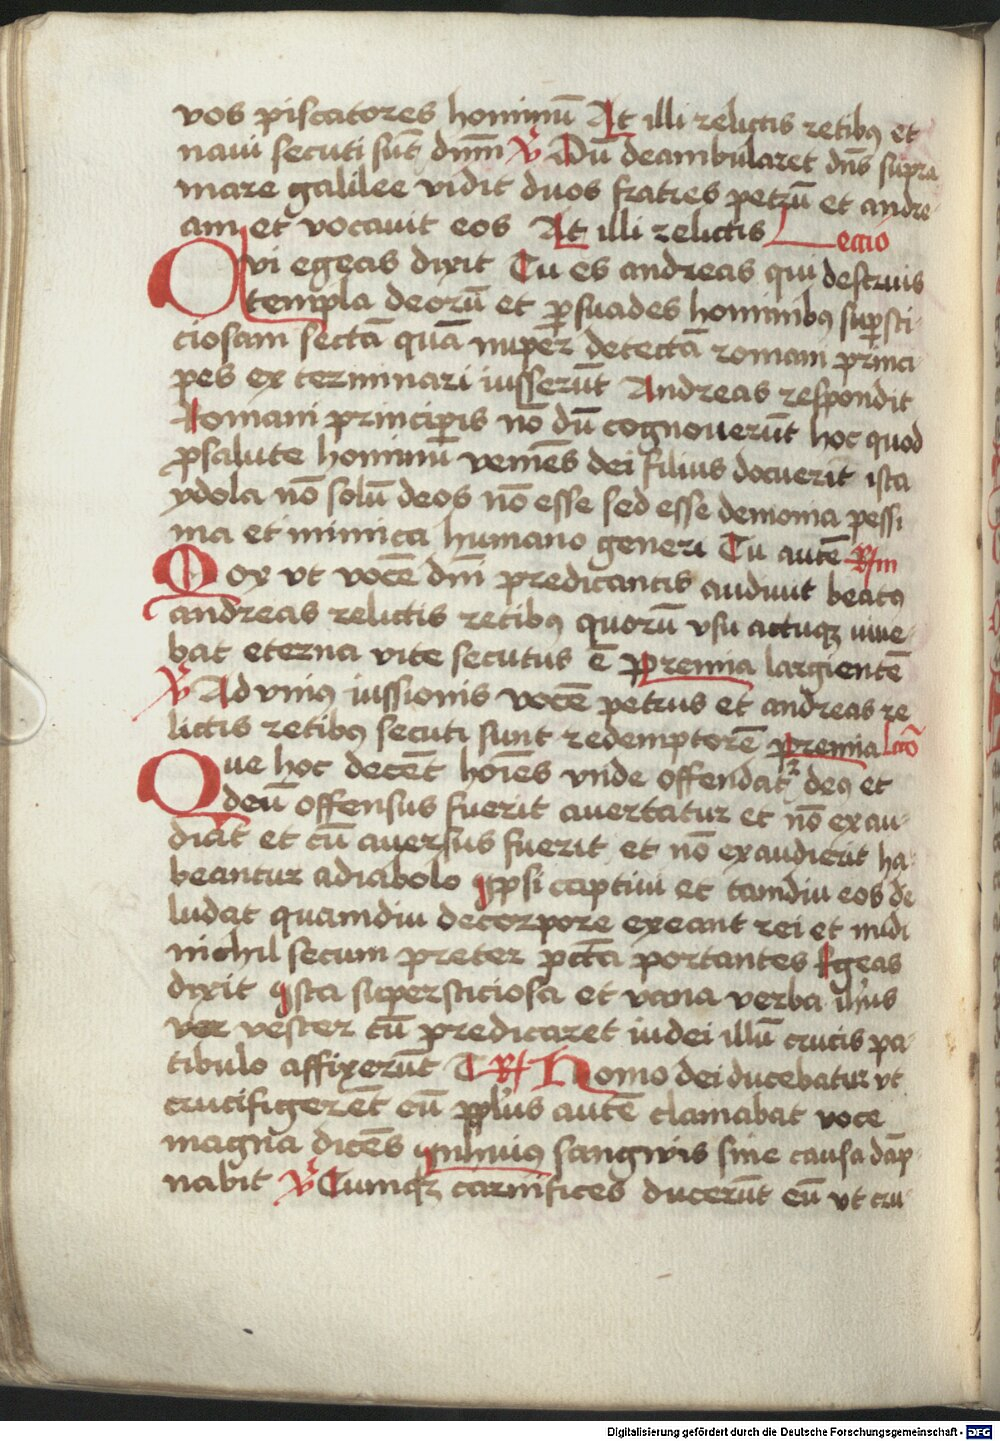 vos piscatores hominū At illi relictis retibꝯ et
naui secuti sūt dn̄m ℣ Dū deambularet dn̄s supra
mare galilee vidit duos fratres petrū et andre
am et vocauit eos At illi relictis Lectio
Qvi egeas dixit Tu es andreas qui destruis
templa deorū et ꝑsuades hominibꝯ suꝑsti-
ciosam sectā quā nuper detectā romani princi
pes ex terminari iusserūt Andreas respondit
Romani principis nō dū cognouerūt hoc quod
ꝓsalute hominū veniēs dei filius docuerit ista
ydola nō solū deos nō esse sed esse demonia pessi
ma et inimica humano generi Tu autē R̸m
Mox vt vocē dn̄i predicantis audiuit beatꝯ
andreas relictis retibꝯ quorū vsu actuqꝫ viue-
bat eterna vite secutus ē premia largientē
℣ Ad vniꝯ iussionis vocē petrus et andreas re
lictis retibꝯ secuti sunt redemptorē premia Lcō
Que hoc decēt hoīes vnde offendatʳ deꝯ et
deū offensus fuerit auertatur et nō exau-
diat et cū auersus fuerit et nō exaudierit ha-
beantur adiabolo ipsi captiui et tamdiu eos de
ludat quamdiu decorpore exeant rei et nudi
nichil secum preter pctā portantes Egeas
dixit ista supersticiosa et vana verba ih̄us
ver vester cū predicaret iudei illū crucis pa-
tibulo affixerūt T R̸ Homo dei ducebatur vt
crucifigerēt eū pplūs autē clamabat voce
magna dicēs inhuiꝯ sangwis sine causa dāp-
nabit ℣ Cumqꝫ carnifices ducerūt eū vt cru-
Digitalisierung gefördert durch die Deutsche Forschungsgemeinschaft - DFG